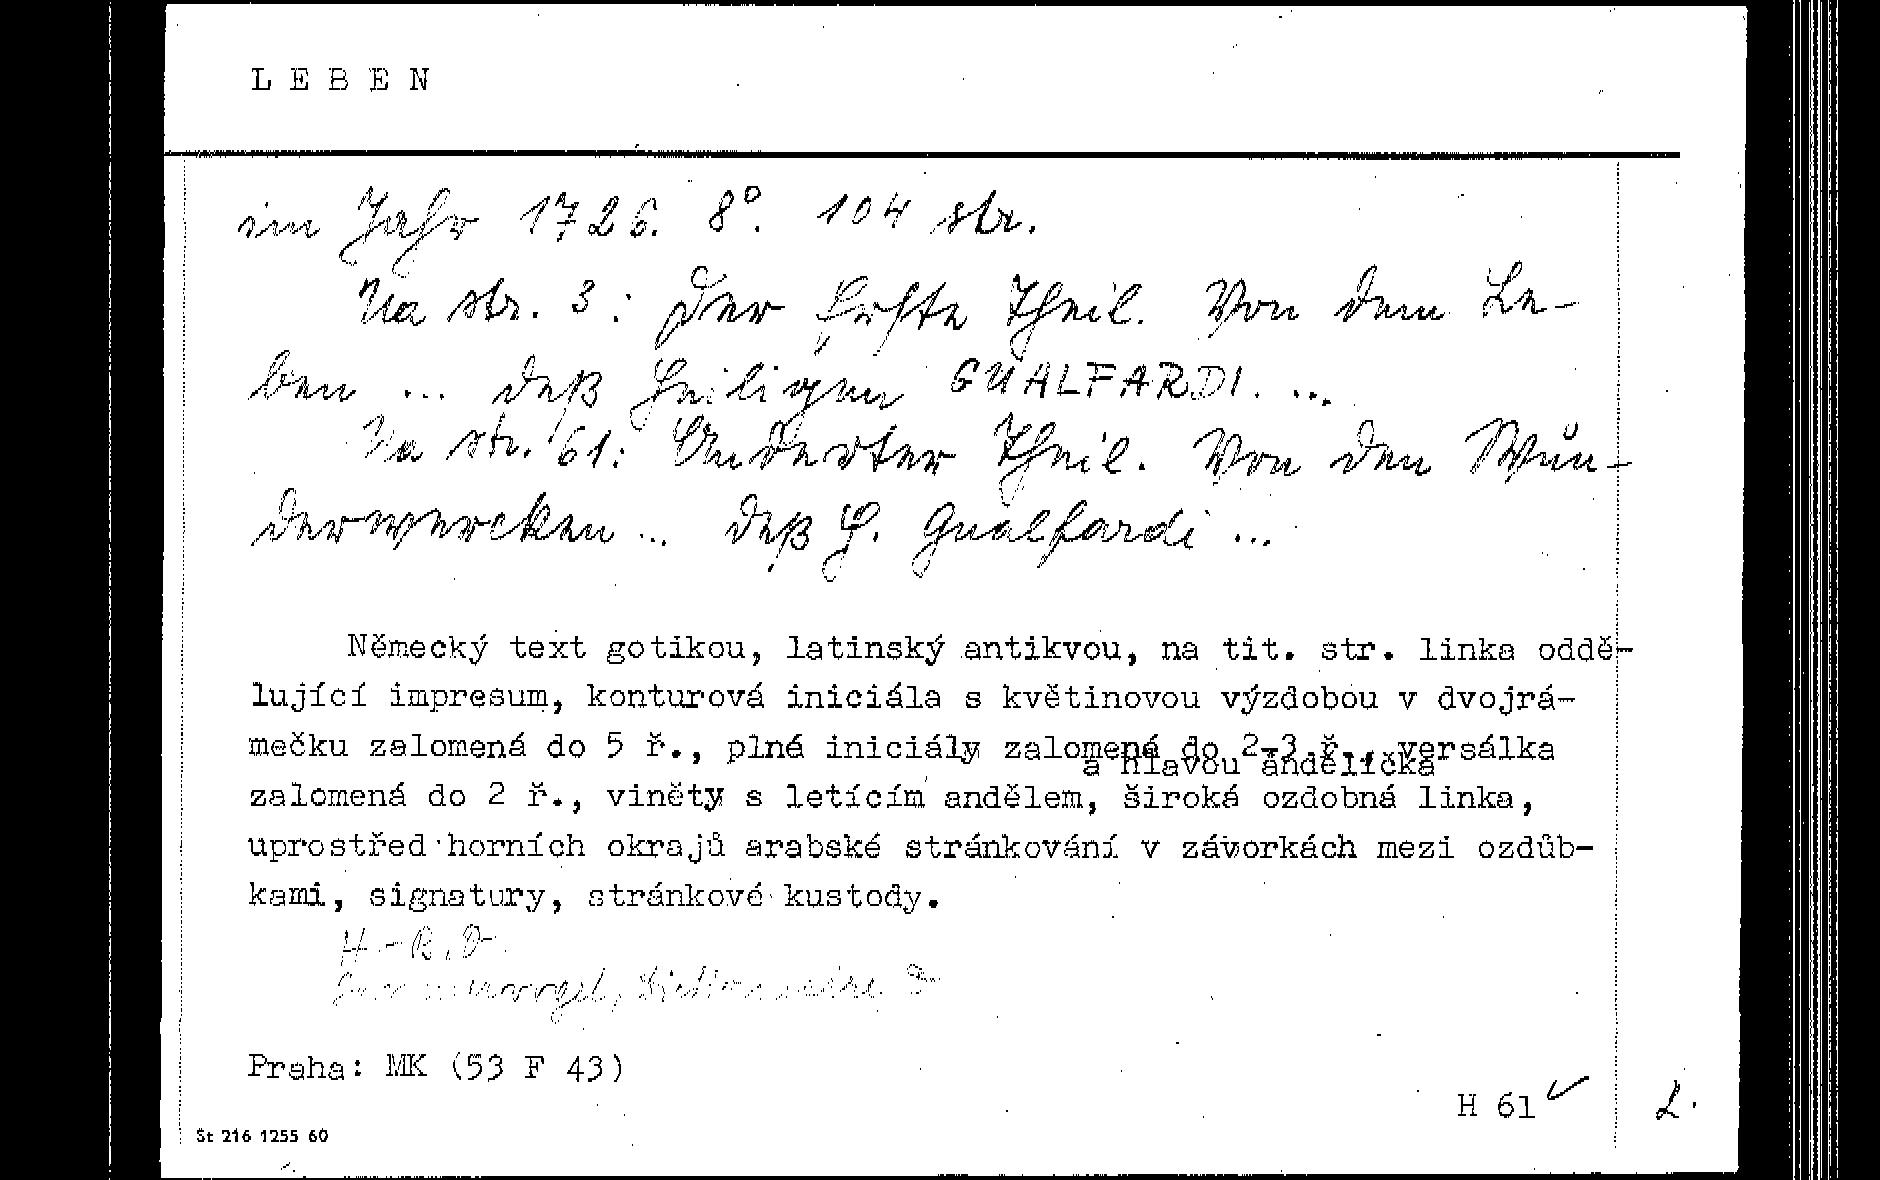 L E B E N
im Jahr 1726. 8°. 104 str.
Na str. 3: Der Erste Theil. Von dem Le-
ben ... deß Heiligen GUALFARDI. ...
Na str. 61: Anderter Theil. Von den Wůn-
derwercken ... deß H. Gualfardi ...
Německý text gotikou, latinský antikvou, na tit. str. linka oddě-
lující impresum, konturová iniciála s květinovou výzdobou v dvojrá-
mečku zalomená do 5 ř., plné iniciály zalomené do 2-3 ř., versálka
a hlavou andělíčka
zalomená do 2 ř., viněty s letícím andělem, široká ozdobná linka,
uprostřed horních okrajů arabské stránkování v závorkách mezi ozdůb-
kami, signatury, stránkové kustody.
H - B, D
Praha: MK (53 F 43)
H 61 ✓
2.
St 216 1255 60